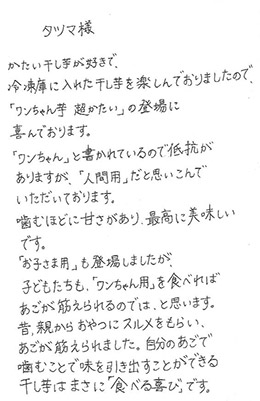 タツマ様
かたい干し芋が好きで、
冷凍庫に入れた干し芋を楽しんでおりましたので、
「ワンちゃん芋 超かたい」の登場に
喜んでおります。
「ワンちゃん」と書かれているので抵抗が
ありますが、「人間用」だと思いこんで
いただいております。
噛むほどに甘さがあり、最高に美味しい
です。
「お子さま用」も登場しましたが、
子どもたちも、「ワンちゃん用」を食べれば
あごが筋えられるのでは、と思います。
昔、親からおやつにスルメをもらい、
あごが筋えられました。自分のあごで
噛むことで味を引き出すことができる
干し芋はまさに「食べる喜び」です。